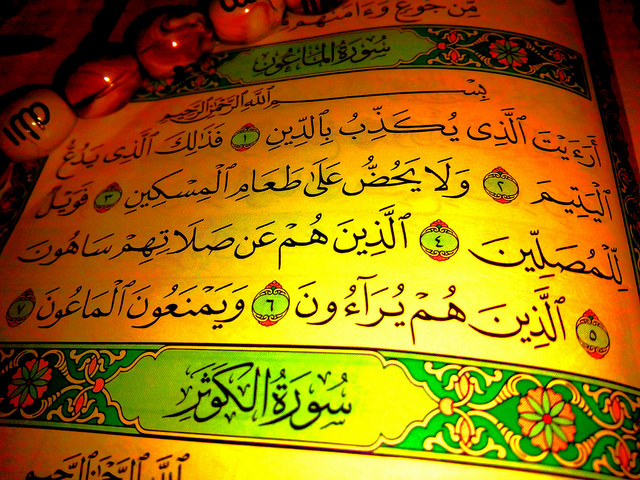 مِّن جُوعٍ وَءَامَنَهُم
سُورَةُ المَاعُونِ
بِسْمِ ٱللَّهِ ٱلرَّحْمَٰنِ ٱلرَّحِيمِ
أَرَءَيْتَ ٱلَّذِى يُكَذِّبُ بِٱلدِّينِ ١ فَذَٰلِكَ ٱلَّذِى يَدُعُّ
ٱلْيَتِيمَ ٢ وَلَا يَحُضُّ عَلَىٰ طَعَامِ ٱلْمِسْكِينِ ٣ فَوَيْلٌ
لِّلْمُصَلِّينَ ٤ ٱلَّذِينَ هُمْ عَن صَلَاتِهِمْ سَاهُونَ
٥ ٱلَّذِينَ هُمْ يُرَآءُونَ ٦ وَيَمْنَعُونَ ٱلْمَاعُونَ ٧
سُورَةُ الكَوْثَرِ
ٱللَّهِ ٱلرَّحْمَٰنِ ٱلرَّحِيمِ